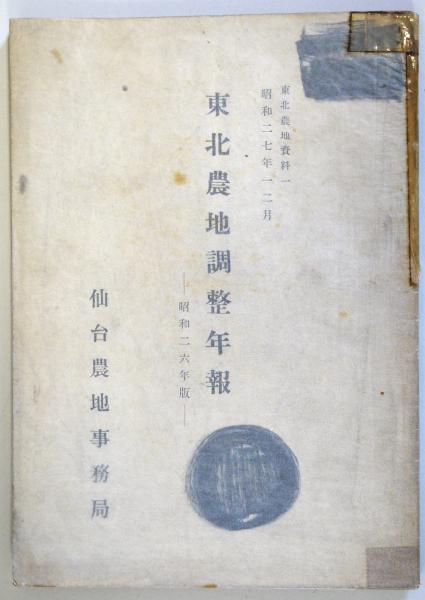 東北農地資料一
昭和二七年一二月
東北農地調整年報
―昭和二六年版―
仙台農地事務局